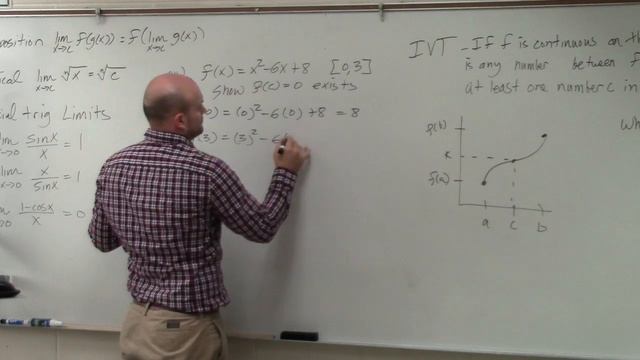 position lim x→c f(g(x)) = f(lim x→c g(x))
lim x→c ⁿ√x = ⁿ√c
trig Limits
lim x→0 sinx/x = 1
x→0 x/sinx = 1
x→0 1-cosx/x = 0
f(x) = x² - 6x + 8 [0,3]
Show f(c) = 0 exists
(0) = (0)² - 6(0) + 8 = 8
(3) = (3)² - 6
IVT - If f is continuous on th
is any number between f
at least one number c in
wh
f(b)
K
f(a)
a c b